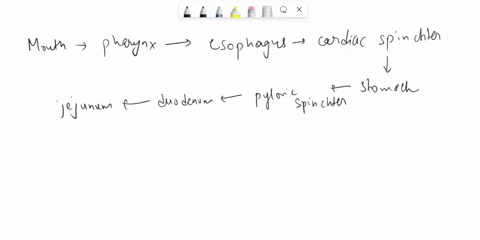 Mouth → pherynx → esophagus → cardiac spinchter
↓
jejunum ← duodenum ← pyloric spinchter ← stomach